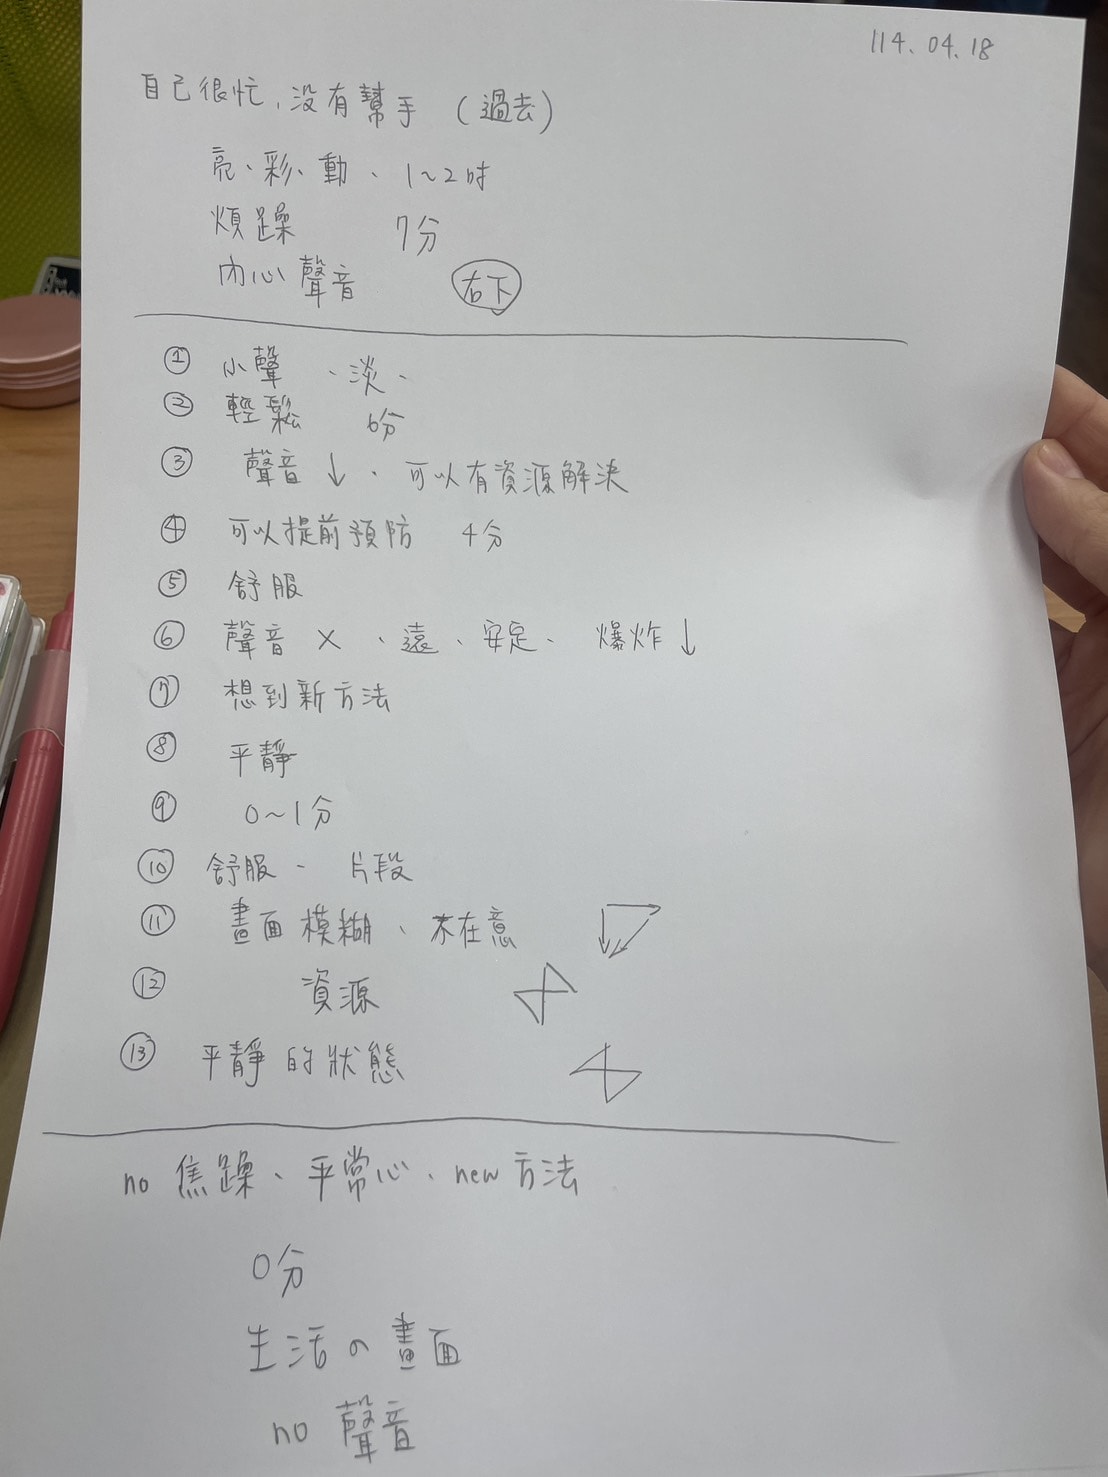 114.04.18
自己很忙,没有幫手 (過去)
亮、彩、動、1~2时
煩躁 7分
內心聲音 右下
① 小聲、淡、
② 輕鬆 6分
③ 聲音↓、可以有資源解決
④ 可以提前預防 4分
⑤ 舒服
⑥ 聲音 × 、遠、安定、爆炸↓
⑦ 想到新方法
⑧ 平靜
⑨ 0~1分
⑩ 舒服、片段
⑪ 畫面模糊、不在意
⑫ 資源
⑬ 平靜的狀態
no 焦躁、平常心、new方法
0分
生活の畫面
no 聲音